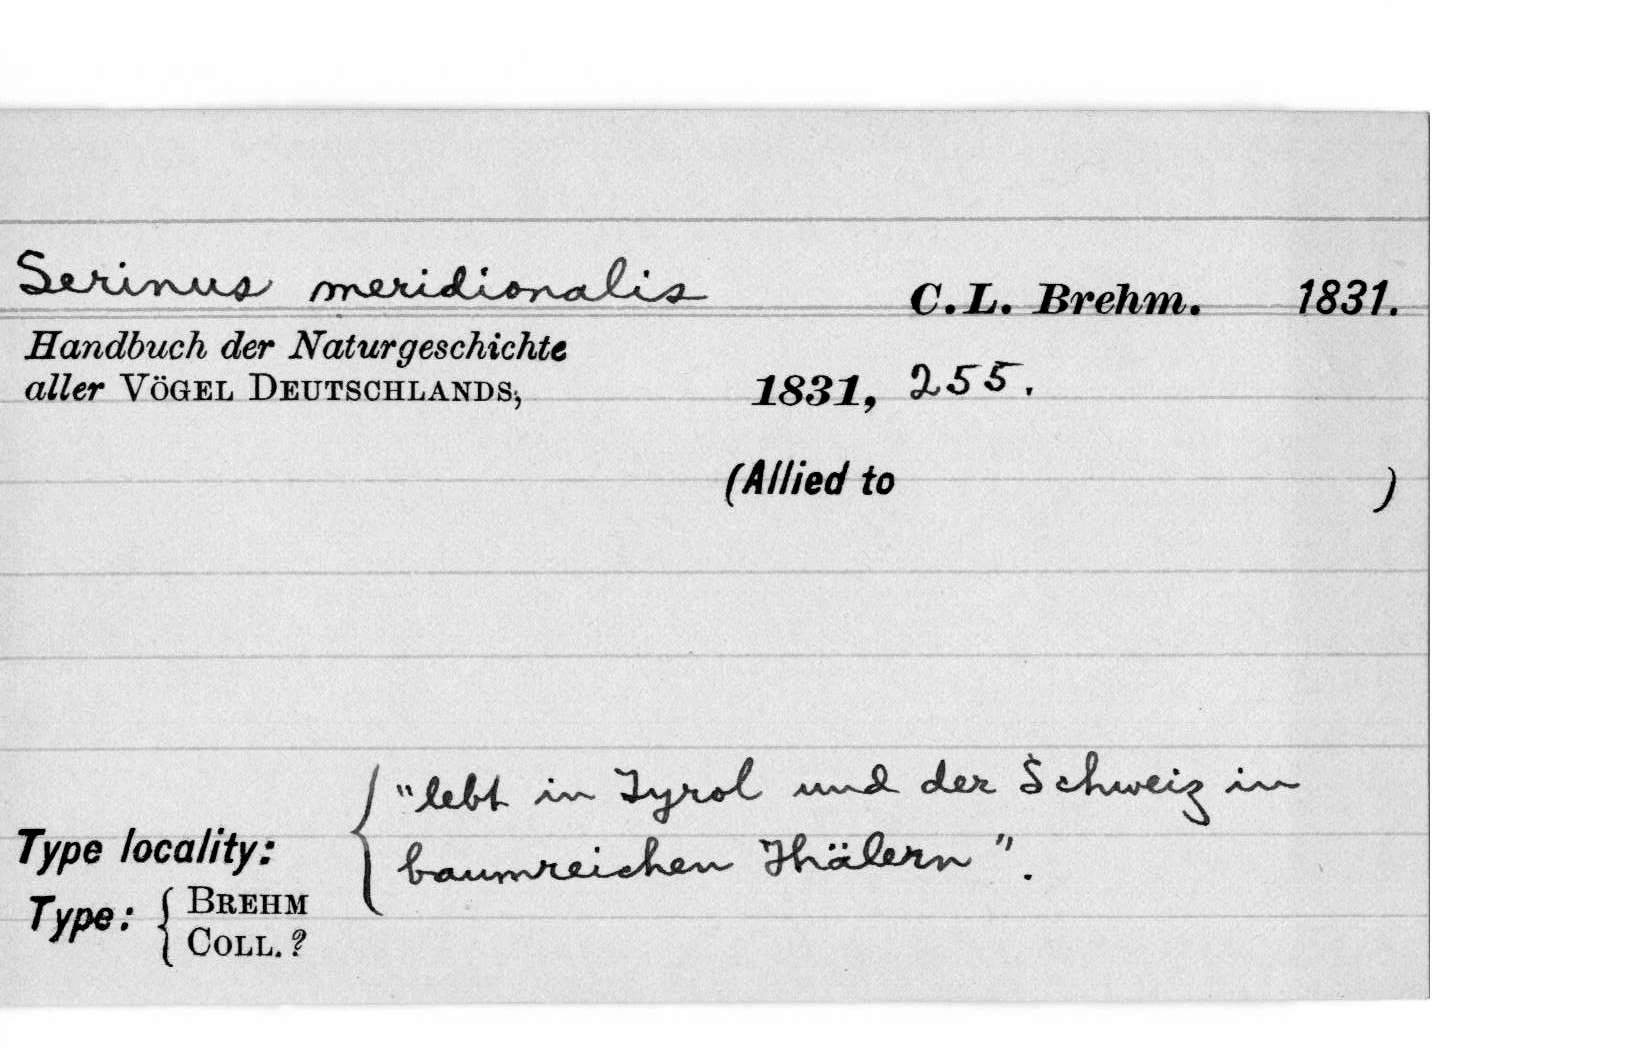 Serinus meridionalis C.L. Brehm. 1831.
Handbuch der Naturgeschichte
aller VÖGEL DEUTSCHLANDS, 1831, 255.
(Allied to )
"lebt in Tyrol und der Schweiz in
Type locality: baumreichen Thälern".
Type: { BREHM
COLL. ?